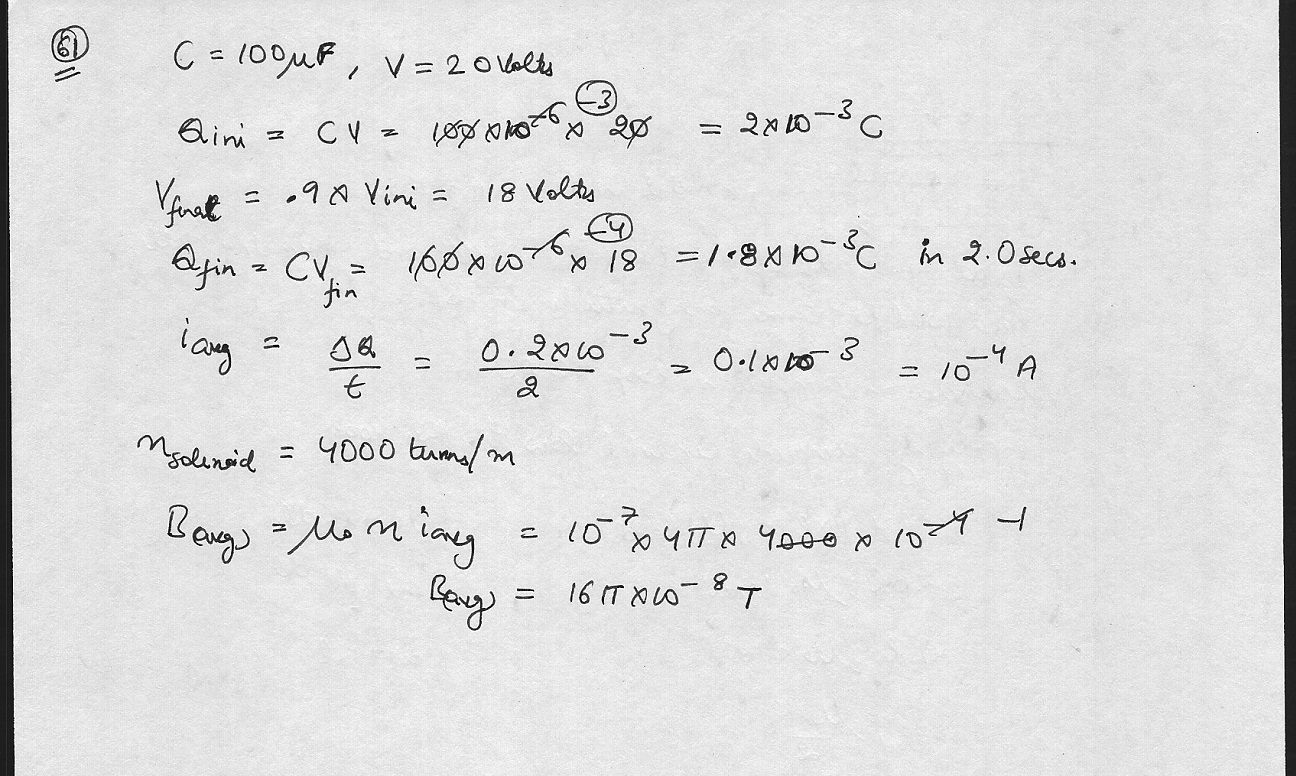 61
C = 100μF, V = 20 Volts
Qini = CV = 100 × 10^-6 × 20 (-3) = 2×10^-3 C
Vfinal = .9 × Vini = 18 Volts
Qfin = CVfin = 100 × 10^-6 × 18 (-4) = 1.8 × 10^-3 C in 2.0 secs.
iavg = ΔQ/t = 0.2×10^-3/2 = 0.1×10^-3 = 10^-4 A
nsolenoid = 4000 turns/m
B(avg) = μ0 n iavg = 10^-7 × 4π × 4000 × 10^-4 -1
B(avg) = 16π×10^-8 T